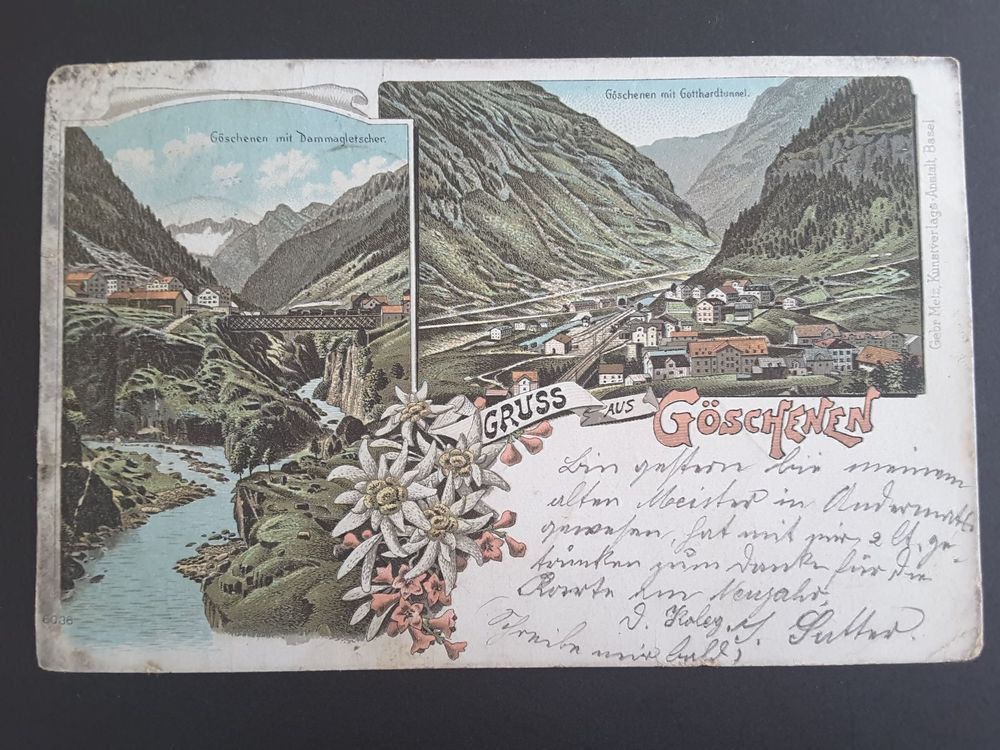 Göschenen mit Dammagletscher.
Göschenen mit Gotthardtunnel.
Gebr Metz, Kunstverlags-Anstalt, Basel
GRUSS AUS GÖSCHENEN
Bin gestern bei meinem
alten Meister in Andermatt
gewesen, hat mit mir 2 lt. ge-
trunken zum Danke für die
Karte am Neujahr,
D. Koleg. Sutter.
Schreibe mir bald
6036